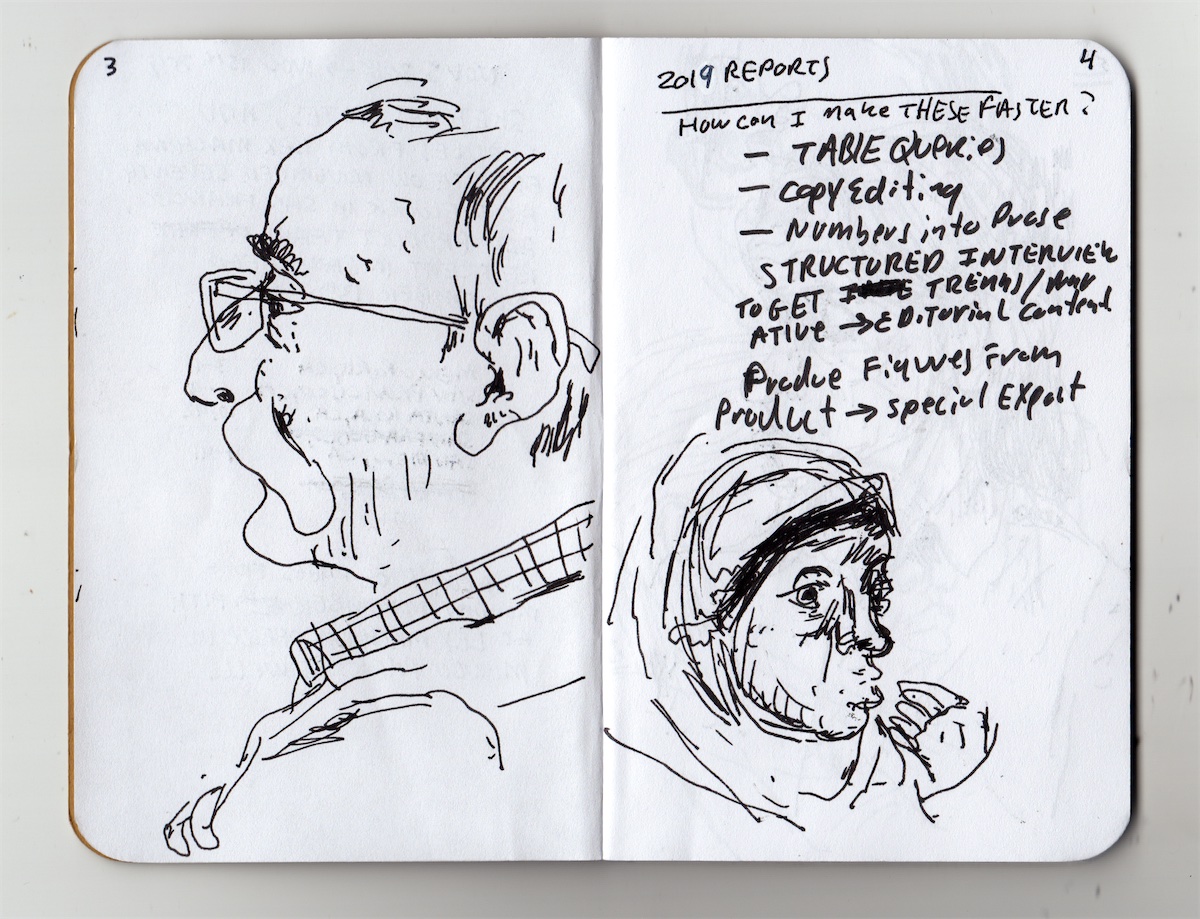 3
4
2019 REPORTS
HOW can I make THESE FASTER?
— TABLE QUERiES
— copy Editing
— Numbers into Prose
STRUCTURED INTERVIEW
TO GET TRENDS/NARR
ATIVE → EDITORIAL Content
Produce Figures From
Product → special Export